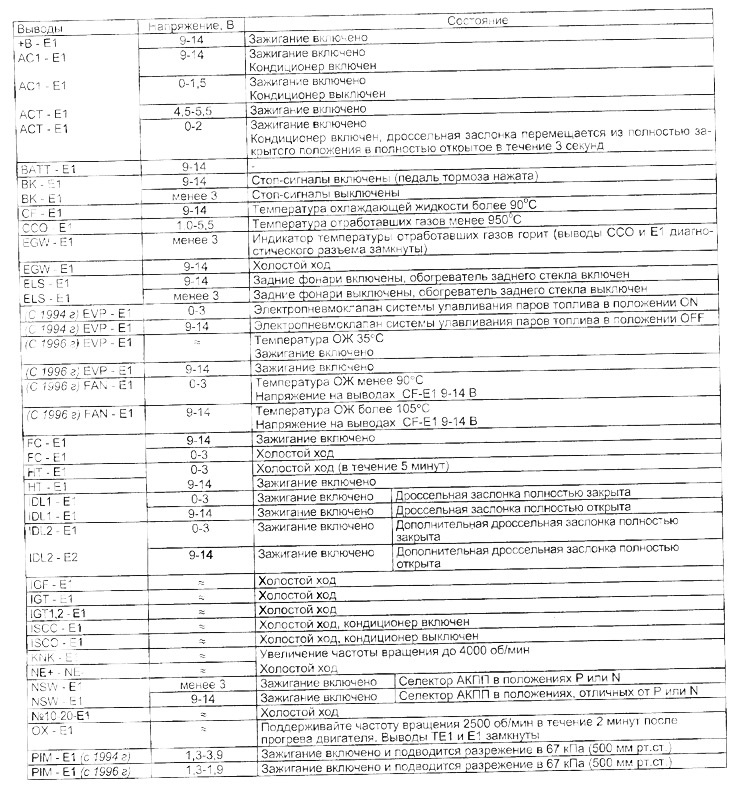 Выводы Напряжение, В Состояние
+B - E1 9-14 Зажигание включено
AC1 - E1 9-14 Зажигание включено
Кондиционер включен
AC1 - E1 0-1,5 Зажигание включено
Кондиционер выключен
ACT - E1 4,5-5,5 Зажигание включено
ACT - E1 0-2 Зажигание включено
Кондиционер включен, дроссельная заслонка перемещается из полностью за-
крытого положения в полностью открытое в течение 3 секунд
BATT - E1 9-14 -
BK - E1 9-14 Стоп-сигналы включены (педаль тормоза нажата)
BK - E1 менее 3 Стоп-сигналы выключены
CF - E1 9-14 Температура охлаждающей жидкости более 90°C
CCO - E1 1,0-5,5 Температура отработавших газов менее 950°C
EGW - E1 менее 3 Индикатор температуры отработавших газов горит (выводы CCO и E1 диагно-
стического разъема замкнуты)
EGW - E1 9-14 Холостой ход
ELS - E1 9-14 Задние фонари включены, обогреватель заднего стекла включен
ELS - E1 менее 3 Задние фонари выключены, обогреватель заднего стекла выключен
(С 1994 г) EVP - E1 0-3 Электропневмоклапан системы улавливания паров топлива в положении ON
(С 1994 г) EVP - E1 9-14 Электропневмоклапан системы улавливания паров топлива в положении OFF
(С 1996 г) EVP - E1 ≈ Температура ОЖ 35°C
Зажигание включено
(С 1996 г) EVP - E1 9-14 Зажигание включено
(С 1996 г) FAN - E1 0-3 Температура ОЖ менее 90°C
Напряжение на выводах CF-E1 9-14 В
(С 1996 г) FAN - E1 9-14 Температура ОЖ более 105°C
Напряжение на выводах CF-E1 9-14 В
FC - E1 9-14 Зажигание включено
FC - E1 0-3 Холостой ход
HT - E1 0-3 Холостой ход (в течение 5 минут)
HT - E1 9-14 Зажигание включено
IDL1 - E1 0-3 Зажигание включено Дроссельная заслонка полностью закрыта
IDL1 - E1 9-14 Зажигание включено Дроссельная заслонка полностью открыта
IDL2 - E1 0-3 Зажигание включено Дополнительная дроссельная заслонка полностью
закрыта
IDL2 - E2 9-14 Зажигание включено Дополнительная дроссельная заслонка полностью
открыта
IGF - E1 ≈ Холостой ход
IGT - E1 ≈ Холостой ход
IGT1,2 - E1 ≈ Холостой ход
ISCC - E1 ≈ Холостой ход, кондиционер включен
ISCO - E1 ≈ Холостой ход, кондиционер выключен
KNK - E1 ≈ Увеличение частоты вращения до 4000 об/мин
NE+ - NE- ≈ Холостой ход
NSW - E1 менее 3 Зажигание включено Селектор АКПП в положениях P или N
NSW - E1 9-14 Зажигание включено Селектор АКПП в положениях, отличных от P или N
№10-20-E1 ≈ Холостой ход
OX - E1 ≈ Поддерживайте частоту вращения 2500 об/мин в течение 2 минут после
прогрева двигателя. Выводы TE1 и E1 замкнуты
PIM - E1 (с 1994 г) 1,3-3,9 Зажигание включено и подводится разрежение в 67 кПа (500 мм рт.ст.)
PIM - E1 (с 1996 г) 1,3-1,9 Зажигание включено и подводится разрежение в 67 кПа (500 мм рт.ст.)